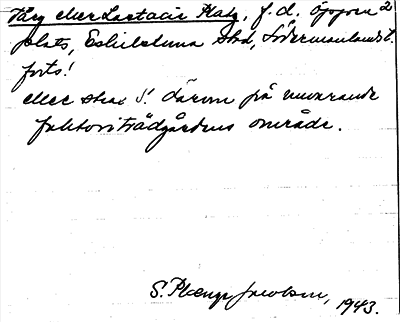 Varg eller Lastadie Plats, f.d.
plats, Eskilstuna stad, Södermanlands l.
forts!
eller strax S. därom på nuvarande
faktoriträdgårdens område.
S. Plænge Jacobson, 1943.